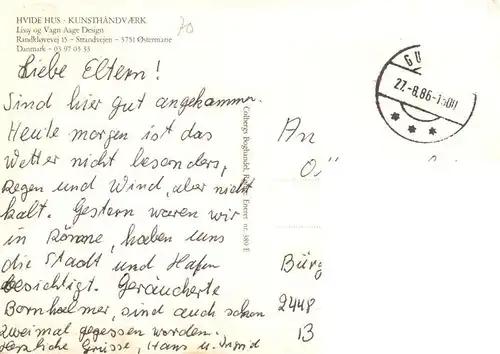 HVIDE HUS · KUNSTHÅNDVÆRK
Lissy og Vagn Aage Design
Randkløvevej 15 – Strandvejen – 3751 Østermarie
Danmark – 03 97 03 33
70
Liebe Eltern!
Sind hier gut angekommen.
Heute morgen ist das
Wetter nicht besonders,
Regen und Wind, aber nicht
kalt. Gestern waren wir
in Rönne, haben uns
die Stadt und Hafen
besichtigt. Geräucherte
Bornholmer, sind auch schon
zweimal gegessen worden.
Herzliche Grüsse, Hans u. Ingrid
Colbergs Boghandel, Rønne. Eneret nr. 389 E
GU
27.-8.86-15
An
Bürg
2448
13